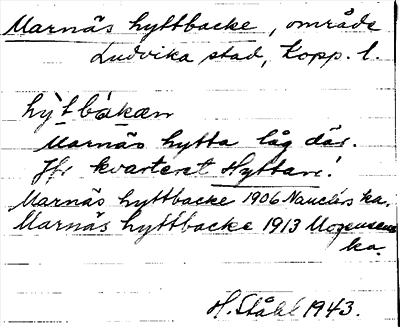 Marnäs hyttbacke, område
Ludvika stad, Kopp. l.
hỳtbàkan
Marnäs hytta låg där.
Jfr kvarteret Hyttan!
Marnäs hyttbacke 1906 Naucler's ka.
Marnäs hyttbacke 1913 Mogensens
ka.
H. Ståhl 1943.